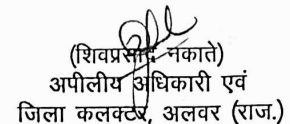 (शिवप्रसाद नकाते)
अपीलीय अधिकारी एवं
जिला कलक्टर, अलवर (राज.)